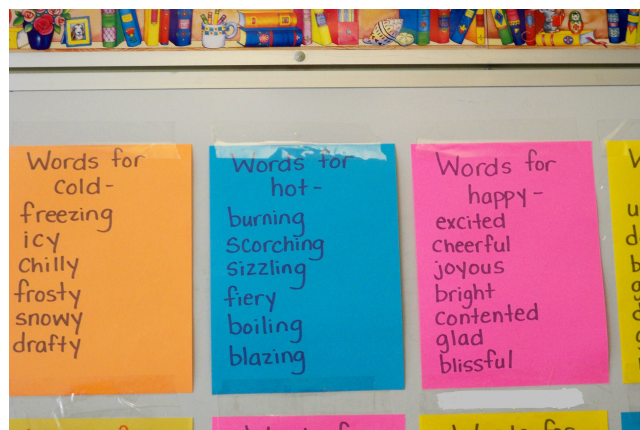 Words for
cold-
freezing
icy
chilly
frosty
snowy
drafty
Words for
hot-
burning
scorching
sizzling
fiery
boiling
blazing
Words for
happy-
excited
cheerful
joyous
bright
contented
glad
blissful
Words for